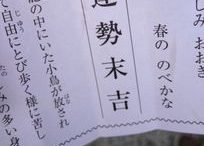 しみ おおき
春の のべかな
運勢末吉
籠の中にいた小鳥が放され
て自由にとび歩く様に苦し
みの多い身